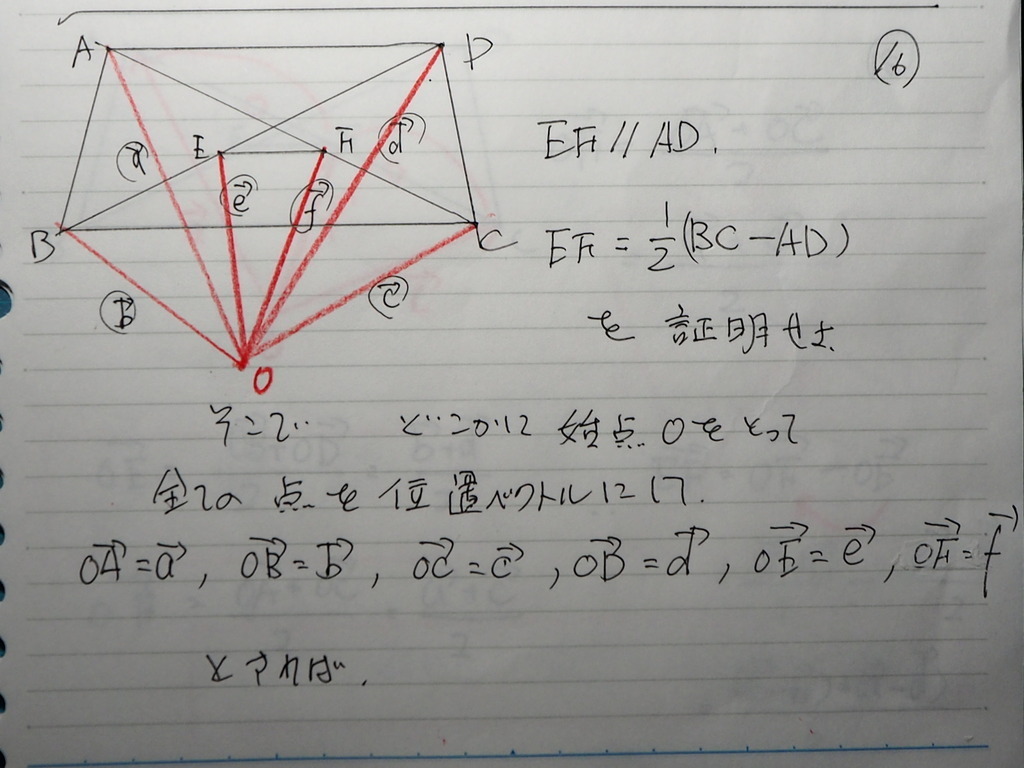 16
A D
E F
B C
a⃗ d⃗
e⃗ f⃗
b⃗ c⃗
O
EF // AD.
EF = 1/2 (BC - AD)
を 証明せよ
そこで… どこかに 始点 Oをとって
全ての 点を 位置ベクトルにして.
OA⃗ = a⃗ , OB⃗ = b⃗ , OC⃗ = c⃗ , OB⃗ = d⃗ , OE⃗ = e⃗ , OF⃗ = f⃗
とすれば.